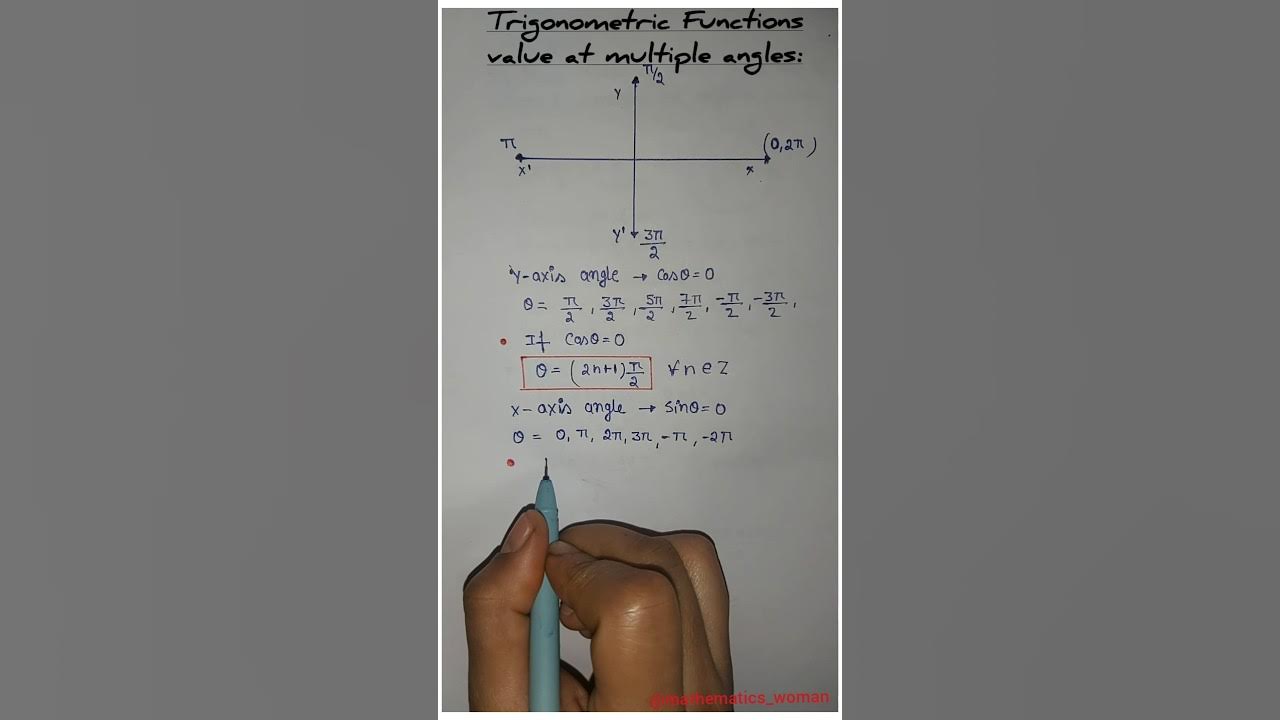 Trigonometric Functions
value at multiple angles:
π/2
Y
π
(0, 2π)
X'
x
Y' 3π/2
Y-axis angle → cosθ=0
θ = π/2, 3π/2, 5π/2, 7π/2, -π/2, -3π/2,
• If cosθ=0
θ = (2n+1)π/2 ∀ n ∈ Z
x-axis angle → sinθ=0
θ = 0, π, 2π, 3π, -π, -2π
•
@mathematics_woman